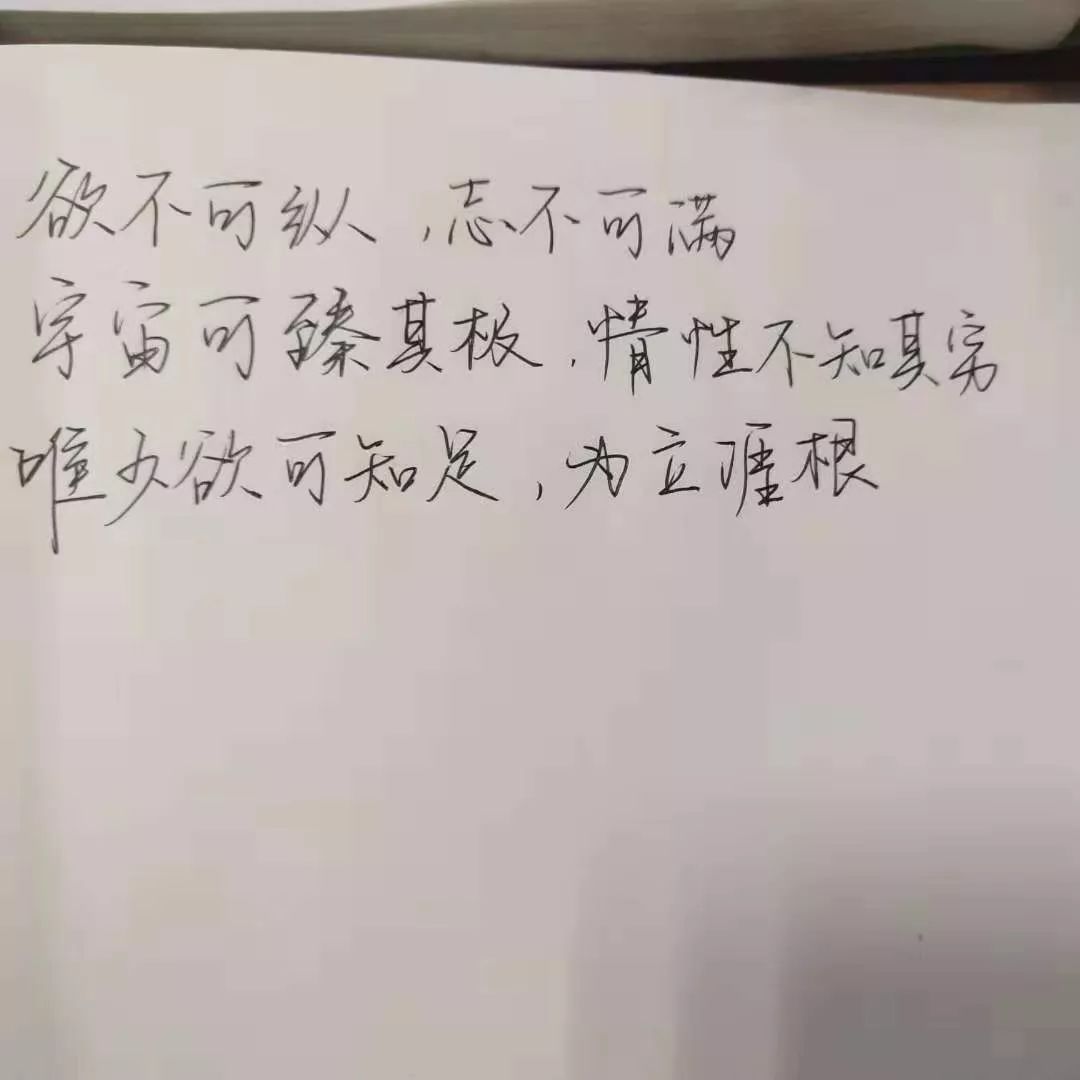 欲不可纵,志不可满
宇宙可臻其极,情性不知其穷
唯少欲可知足,为立涯根